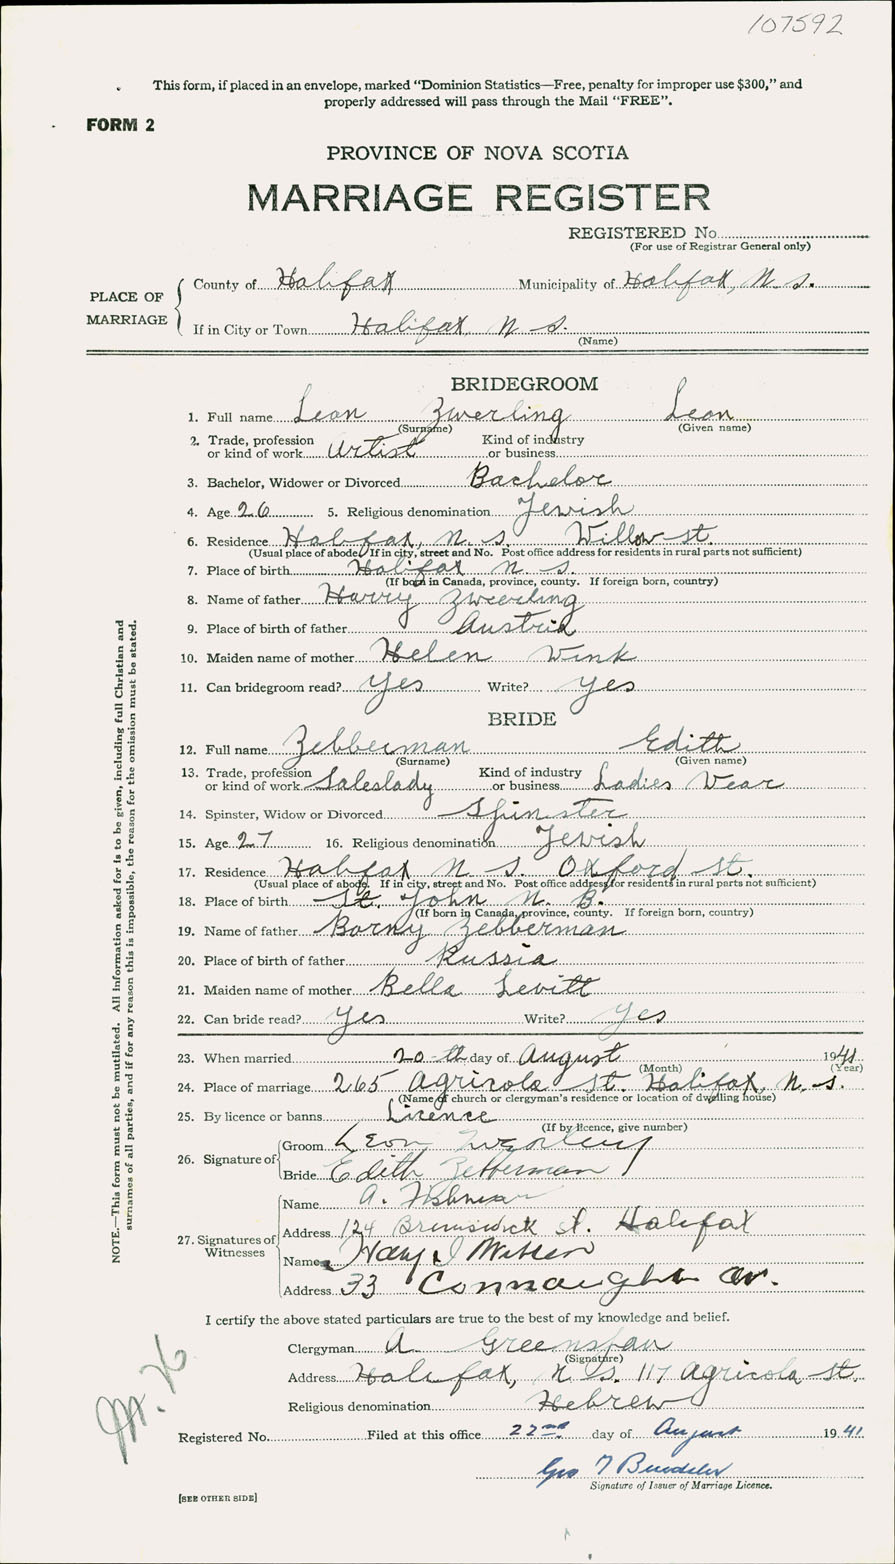 107592
This form, if placed in an envelope, marked "Dominion Statistics—Free, penalty for improper use $300," and
properly addressed will pass through the Mail "FREE".
FORM 2
PROVINCE OF NOVA SCOTIA
MARRIAGE REGISTER
REGISTERED No.
(For use of Registrar General only)
PLACE OF MARRIAGE
County of Halifax Municipality of Halifax, N. S.
If in City or Town Halifax, N. S.
(Name)
BRIDEGROOM
1. Full name Leon Zwerling Leon
(Surname) (Given name)
2. Trade, profession or kind of work Artist Kind of industry or business
3. Bachelor, Widower or Divorced Bachelor
4. Age 26 5. Religious denomination Jewish
6. Residence Halifax, N. S. Willow St.
(Usual place of abode. If in city, street and No. Post office address for residents in rural parts not sufficient)
7. Place of birth Halifax N. S.
(If born in Canada, province, county. If foreign born, country)
8. Name of father Harry Zwerling
9. Place of birth of father Austria
10. Maiden name of mother Helen Wink
11. Can bridegroom read? Yes Write? Yes
BRIDE
12. Full name Zebberman Edith
(Surname) (Given name)
13. Trade, profession or kind of work Saleslady Kind of industry or business Ladies Wear
14. Spinster, Widow or Divorced Spinster
15. Age 27 16. Religious denomination Jewish
17. Residence Halifax N. S. Oxford St.
(Usual place of abode. If in city, street and No. Post office address for residents in rural parts not sufficient)
18. Place of birth St. John N. B.
(If born in Canada, province, county. If foreign born, country)
19. Name of father Barny Zebberman
20. Place of birth of father Russia
21. Maiden name of mother Bella Levitt
22. Can bride read? Yes Write? Yes
23. When married 20-th day of August 1941
(Month) (Year)
24. Place of marriage 265 Agricola St. Halifax, N. S.
(Name of church or clergyman's residence or location of dwelling house)
25. By licence or banns Licence
(If by licence, give number)
26. Signature of
Groom Leon Zwerling
Bride Edith Zebberman
27. Signatures of Witnesses
Name A. Fishman
Address 124 Brunswick St. Halifax
Name
Address 33 Connaught Av.
I certify the above stated particulars are true to the best of my knowledge and belief.
Clergyman A Greenspan
(Signature)
Address Halifax, N. S. 117 Agricola St.
Religious denomination Hebrew
Registered No. Filed at this office 22nd day of August 1941
Geo
Signature of Issuer of Marriage Licence.
[SEE OTHER SIDE]
NOTE.—This form must not be mutilated. All information asked for is to be given, including full Christian and
surnames of all parties, and if for any reason this is impossible, the reason for the omission must be stated.